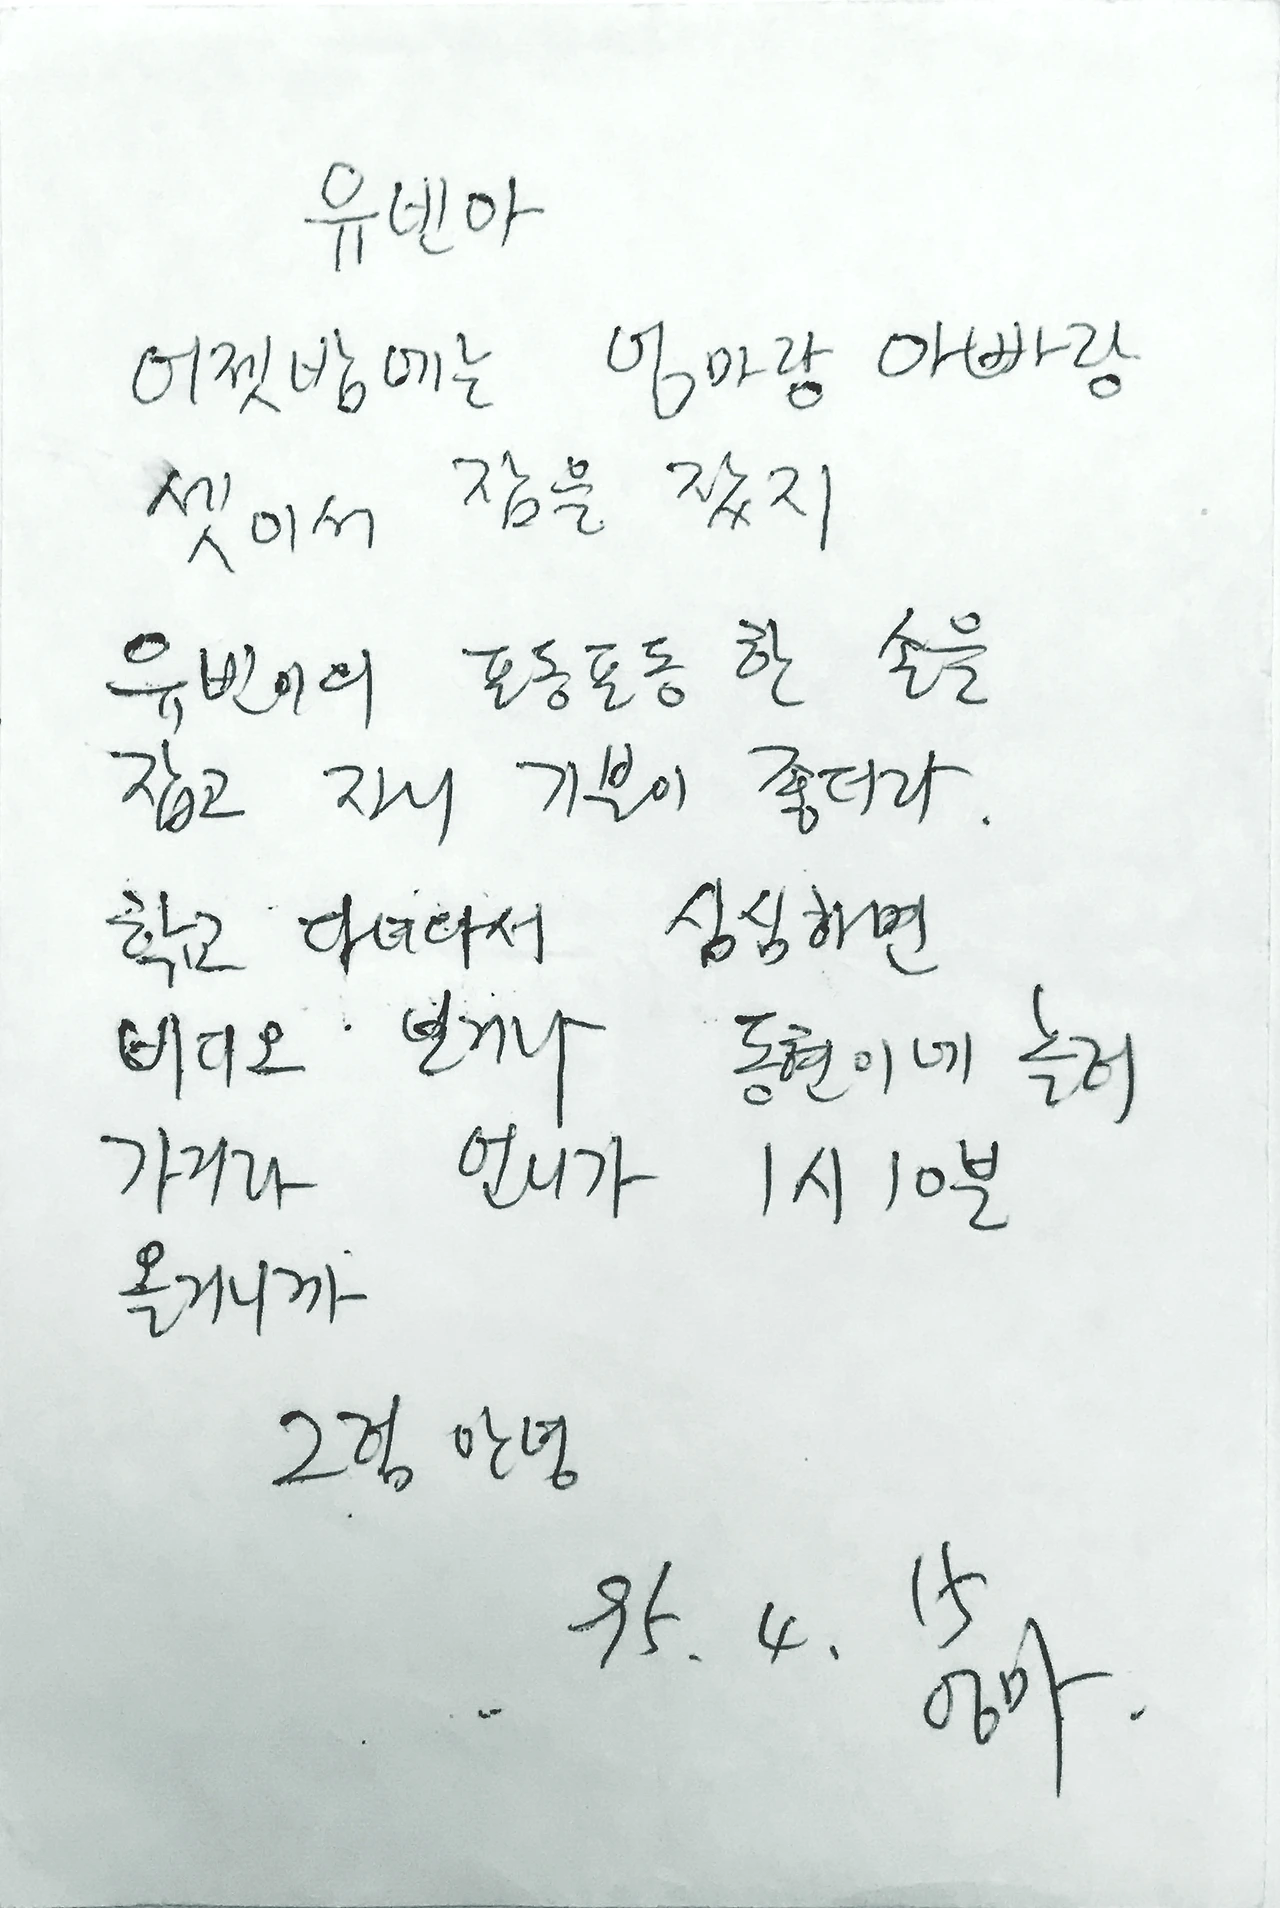 유벤아
어젯밤에는 엄마랑 아빠랑
셋이서 잠을 잤지
유빈이의 포동포동 한 손을
잡고 자니 기분이 좋더라.
학교 다녀와서 심심하면
비디오 보거나 동현이네 놀러
가거라 언니가 1시 10분
올거니까
그럼 안녕
95. 4. 15
엄마.